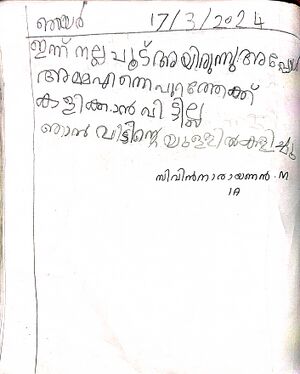 ഞായർ 17/3/2024
ഇന്ന് നല്ല ചൂട് ആയിരുന്നു അപ്പോൾ
അമ്മ എന്നെ പുറത്തേക്ക്
കളിക്കാൻ വി ട്ടില്ല
ഞാൻ വീട്ടിന്റെ യുള്ളിൽ കളിച്ചു
സിവിൻനാരായണൻ.M
1A